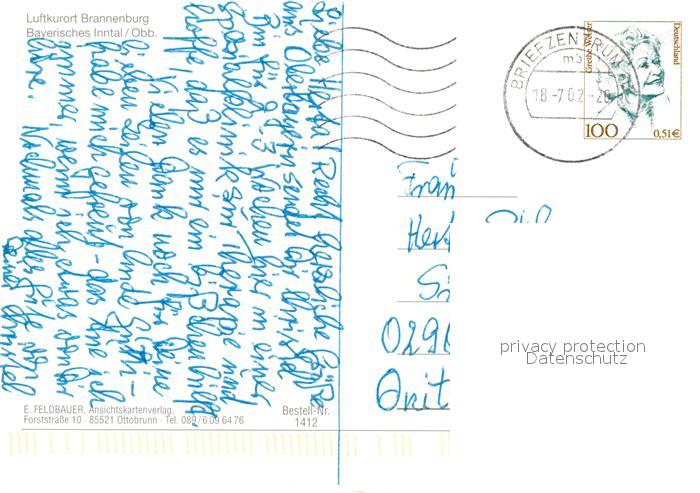 Luftkurort Brannenburg
Bayerisches Inntal / Obb.
Liebe Herta! Recht herzliche Grüße
aus Oberbayern sendet Dir Christel
Bin für 2-3 Wochen hier in einer
und
hoffe, daß es mir ein bißchen hilft.
Vielen Dank noch für Deine
lieben Zeilen von Ende Juni -
habe mich gefreut - das tue ich
immer, wenn ich etwas von Dir
höre. Nochmals alles Gute
Deine Christel
E. FELDBAUER, Ansichtskartenverlag,
Forststraße 10 · 85521 Ottobrunn · Tel. 089/6 09 64 76
Bestell-Nr.
1412
BRIEFZENTRUM
18-7.02-20
Grethe Weiser
Deutschland
100
0,51€
Frau
Her
0296
privacy protection
Datenschutz